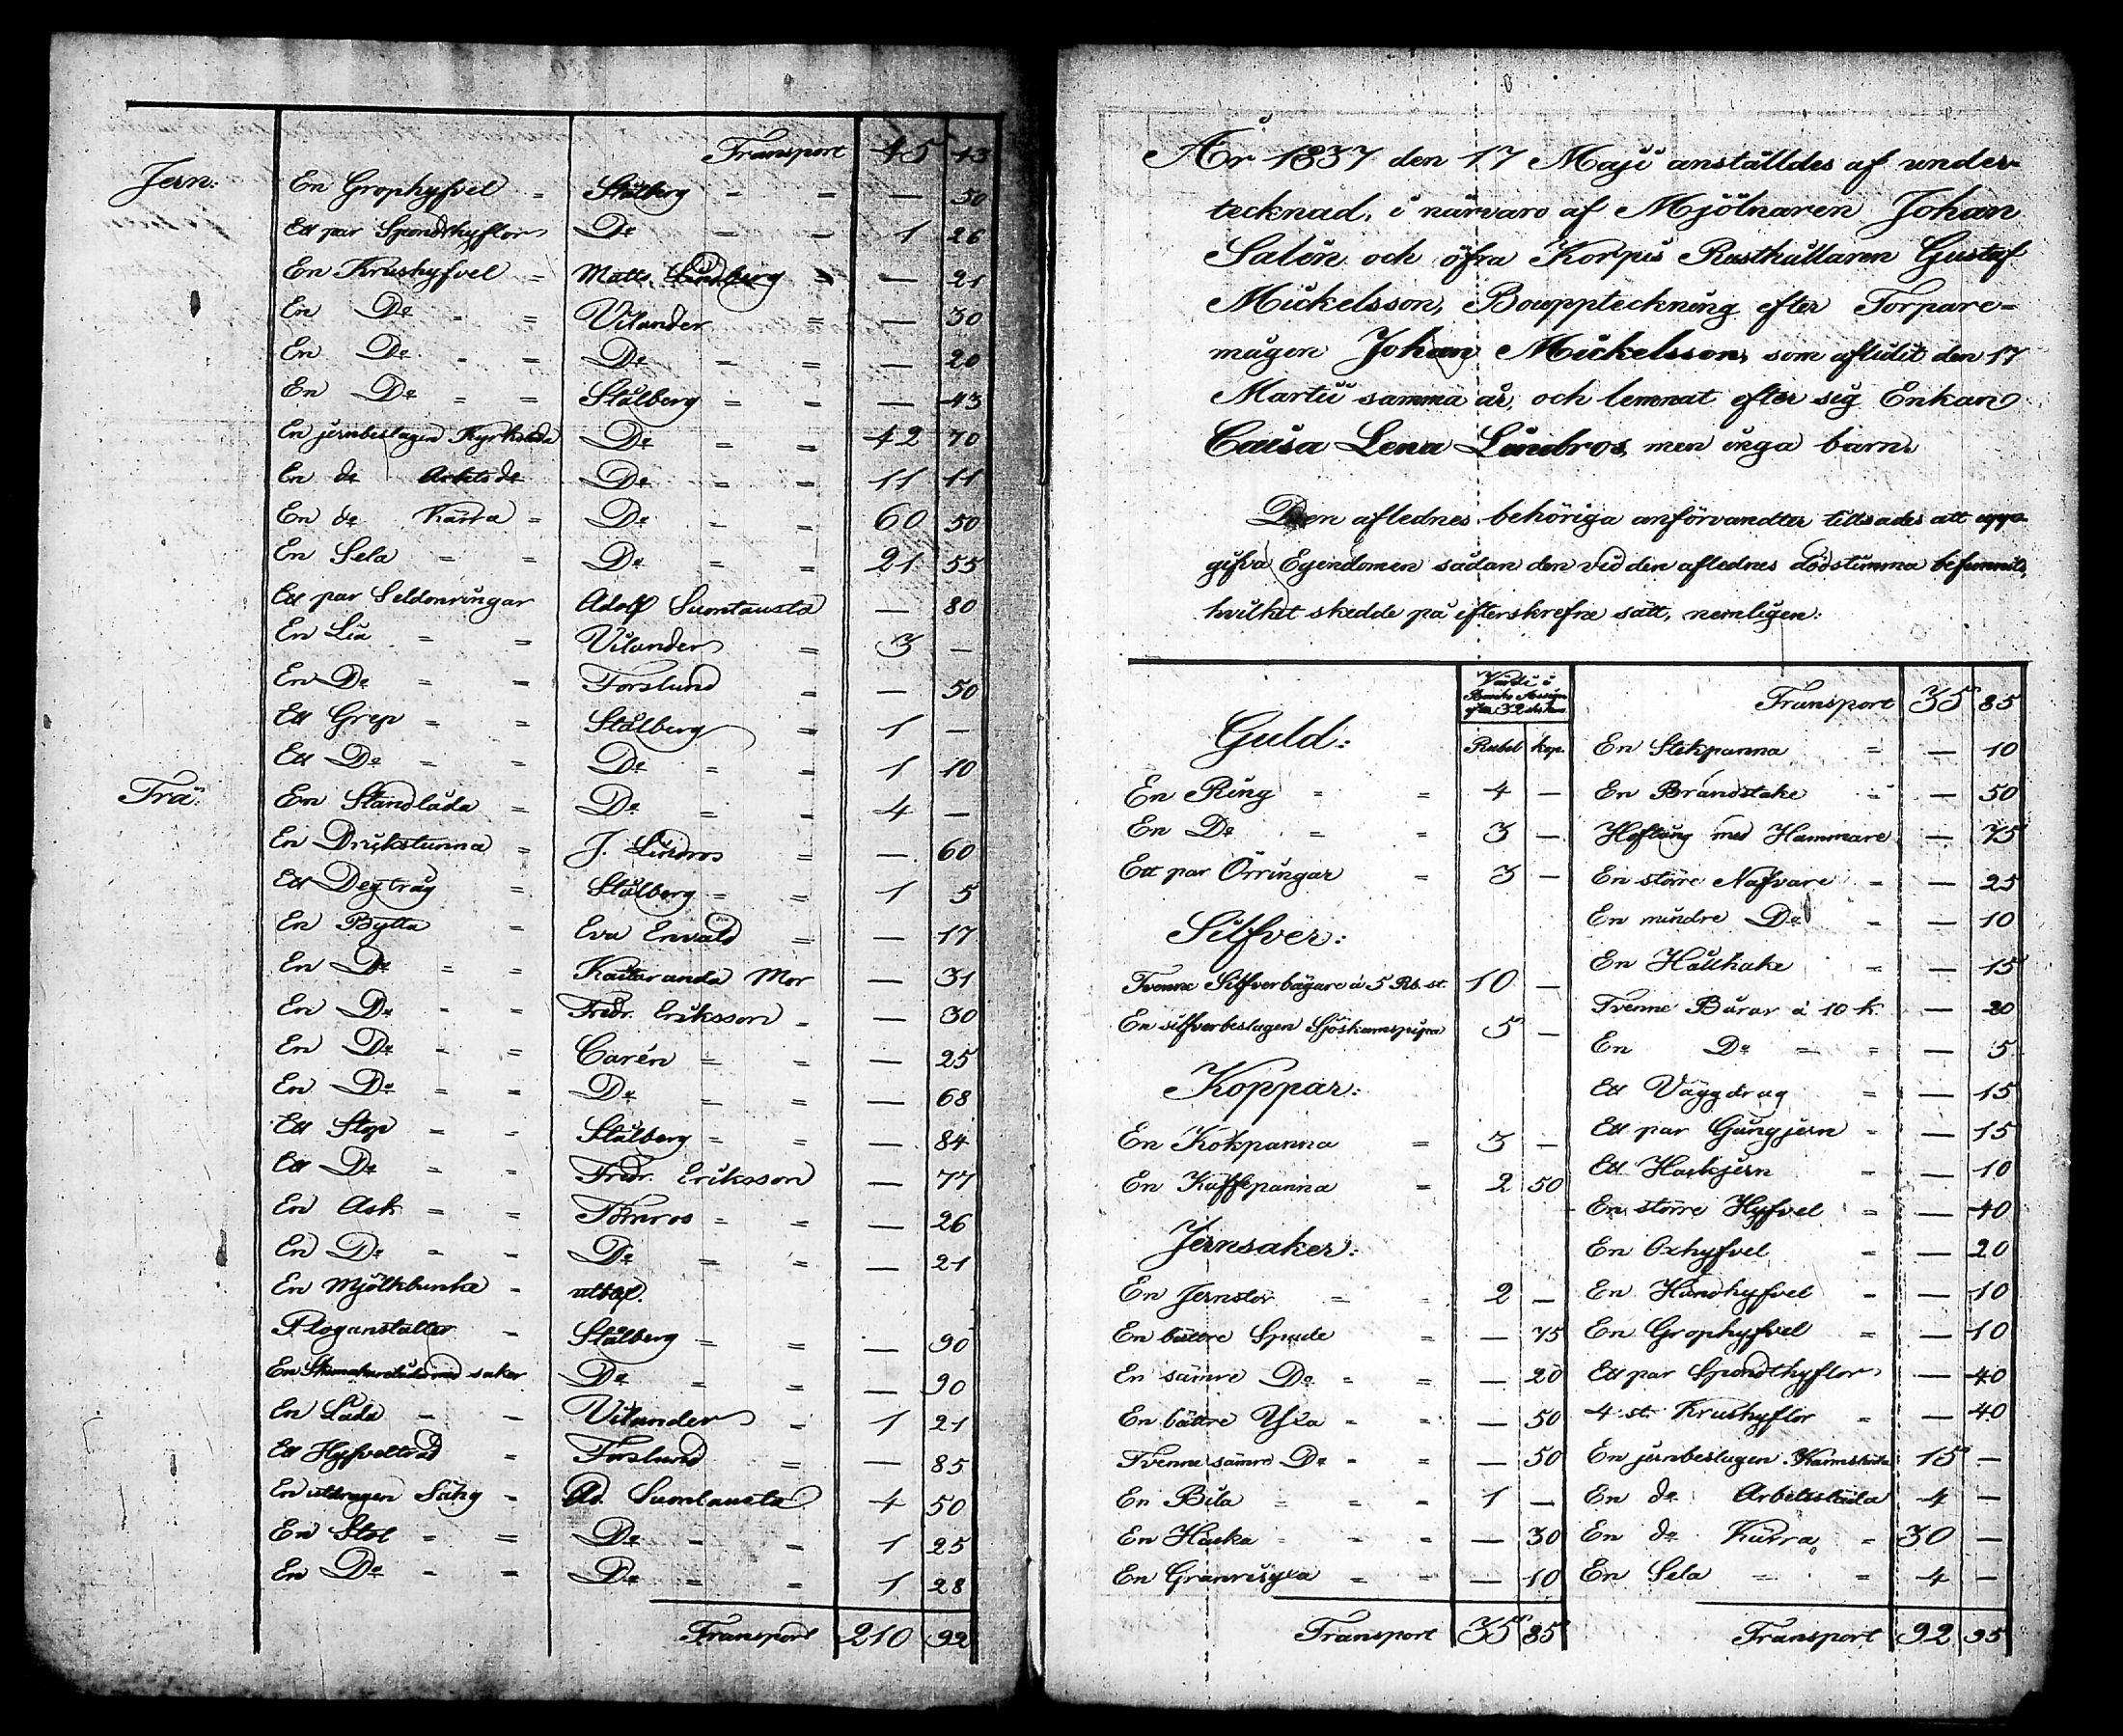 Transport 45 43
Jern:
En Grophyfvel = Stålberg = = — 50
Ett par Spondthyflor De = = 1 26
En Krushyfvel = Matts Lindberg = — 21
En De = = Vilander = — 30
En De = = De = = — 20
En De = = Stålberg = = — 43
En jernbeslagen Kyrksläde De = = 42 70
En de Arbets de De = = 11 11
En de Kärra = De = = 60 50
En Sela = = De = = 21 55
Ett par Seldonringar Adolf Sumtausta — 80
En Lia = = Vilander = 3 —
En De = = Forslund = — 50
Ett Grep = = Stålberg = 1 —
Ett De = = De = = 1 10
Trä:
EnStåndlåda = De = = 4 —
En Drickstunna = J. Lindros = — 60
Ett Degtråg = Stålberg = = 1 5
En Bytta = Eva Envald = — 17
En De = = Kaitaranda Mor — 31
En De = = Fredr. Eriksson = — 30
En De = = Carén = = — 25
En De = = De = = — 68
Ett Stop = = Stålberg = = — 84
Ett De = = Fredr. Eriksson — 77
En Ask = = Törnros = = — 26
En De = = De = = — 21
En Mjölkbunke =
Ploganstalter = Stålberg = = — 90
En med saker De = = — 90
En Låda = = Vilander = 1 21
Ett Hyfvelträd = Forslund = — 85
En utdragen Säng = Ad. Sumtausta 4 50
En Stol = = De = = 1 25
En De = = De = = 1 28
Transport 210 92
År 1837 den 17 Maji anställdes af under-
tecknad, i närvaro af Mjölnaren Johan
Salén och öfra Korpis Rusthållaren Gustaf
Mickelsson, Bouppteckning efter Torpare-
mågen Johan Mickelsson, som aflidit den 17
Martii samma år, och lemnat efter sig Enkan
Caisa Lena Lindros, men inga barn.
Den aflednes behöriga anförvandter tillsades att upp-
gifva Egendomen sådan den vid den aflednes dödstimma befunnits,
hvilket skedde på efterskrefne sätt, nemligen:
Värde i
Banko Assign.
Rubel kop.
Guld:
En Ring = = 4 —
En De = = 3 —
Ett par Örringar = 3 —
Silfver:
Tvenne Silfverbägare à 5 Rb. st. 10 —
En silfverbeslagen Sjöskumspipa 5 —
Koppar:
En Kokpanna = 3 —
En Kaffepanna = 2 50
Jernsaker:
En Jernstör = = 2 —
En bättre Spade = — 75
En sämre De = = — 20
En bättre Yxa = = — 50
Tvenne sämre De = = — 50
En Bila = = = 1 —
En Hacka = = = — 30
En Granrisyxa = = — 10
Transport 35 85
Transport 35 85
En Stekpanna = — 10
En Brandstake = — 50
Hoftång med Hammare — 75
En större Nafvare = — 25
En mindre De = — 10
En Hållhake = — 15
Tvenne Bårar à 10 k. — 20
En De = = — 5
Ett Väggdrag = — 15
Ett par Gångjern = — 15
Ett Hackjern = — 10
En större Hyfvel = — 40
En Oxhyfvel = — 20
En Handhyfvel = — 10
En Grophyfvel = — 10
Ett par Spondthyflor — 40
4 st. Krushyflor = — 40
En jernbeslagen 15 —
En de Arbetssläda 4 —
En de Kärra = 30 —
En Sela = = 4 —
Transport 92 95